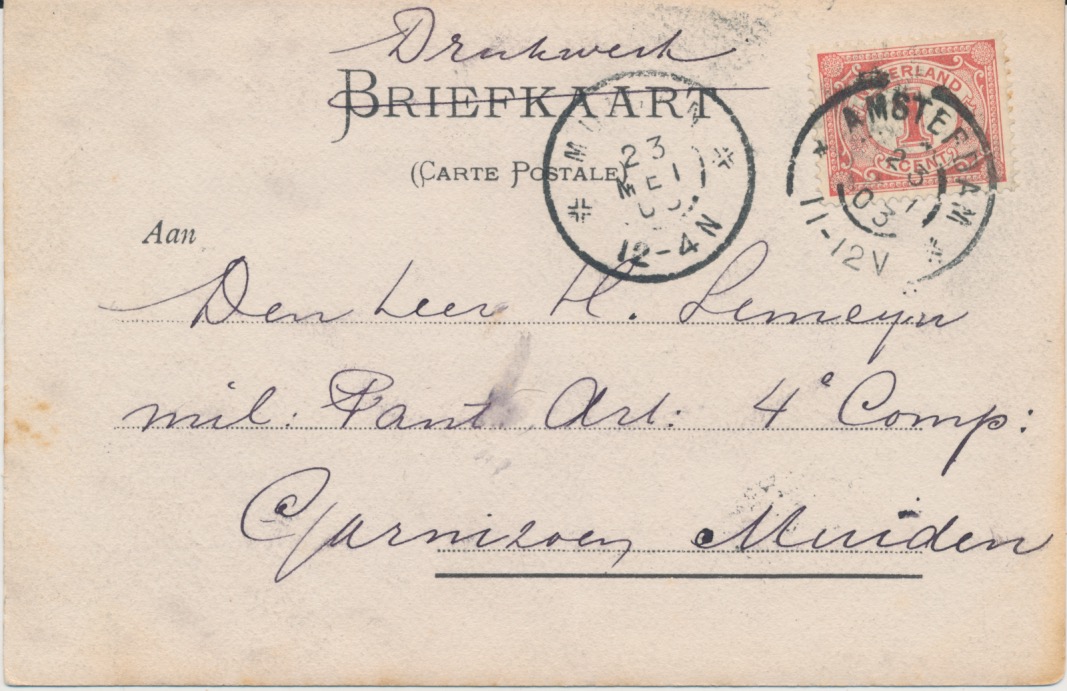 Drukwerk
BRIEFKAART
(CARTE POSTALE)
23
MEI
12-4N
NEDERLAND
1
CENT
AMSTERDAM
23
03
11-12V
Aan
Den Heer H. Lemeyn
mil: Pant. Art: 4e Comp:
Garnizoen Muiden